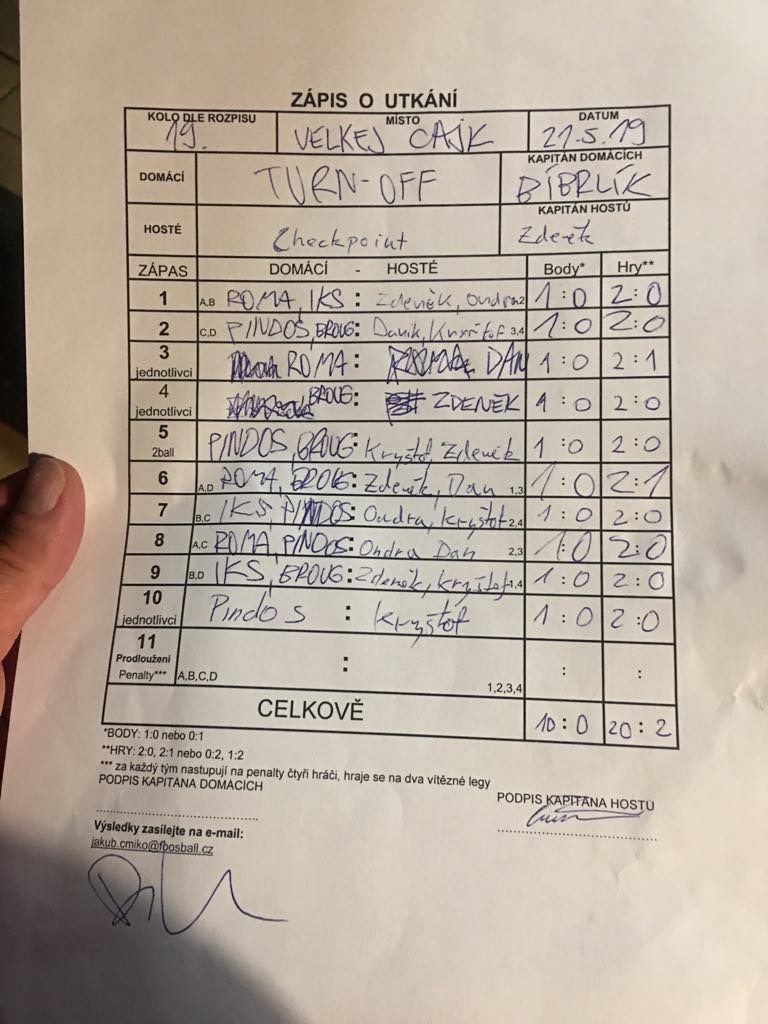 ZÁPIS O UTKÁNÍ
KOLO DLE ROZPISU MÍSTO DATUM
19. VELKEJ CAJK 21.5.19
DOMÁCÍ TURN-OFF KAPITÁN DOMÁCÍCH BÍBRLÍK
HOSTÉ Checkpoint KAPITÁN HOSTŮ Zdeněk
ZÁPAS DOMÁCÍ - HOSTÉ Body* Hry**
1 A,B ROMA, IKS : Zdeněk, Ondra 1:0 2:0
2 C,D PINDOS, BROUG: Daník, Kryštof 3,4 1:0 2:0
3 jednotlivci ROMA: DAN 1:0 2:1
4 jednotlivci BROUG: ZDENĚK 1:0 2:0
5 2ball PINDOS, BROUG: Kryštof, Zdeněk 1:0 2:0
6 A,D ROMA, BROUG: Zdeněk, Dan 1,3 1:0 2:1
7 B,C IKS, PINDOS: Ondra, Kryštof 2,4 1:0 2:0
8 A,C ROMA, PINDOS: Ondra Dan 2,3 1:0 2:0
9 B,D IKS, BROUG: Zdeněk, Kryštof 1,4 1:0 2:0
10 jednotlivci Pindos : Kryštof 1:0 2:0
11 Prodloužení Penalty*** A,B,C,D : 1,2,3,4 : :
CELKOVĚ 10:0 20:2
*BODY: 1:0 nebo 0:1
**HRY: 2:0, 2:1 nebo 0:2, 1:2
*** za každý tým nastupují na penalty čtyři hráči, hraje se na dva vítězné legy
PODPIS KAPITÁNA DOMÁCÍCH PODPIS KAPITÁNA HOSTŮ
Výsledky zasílejte na e-mail:
jakub.cmiko@fbosball.cz